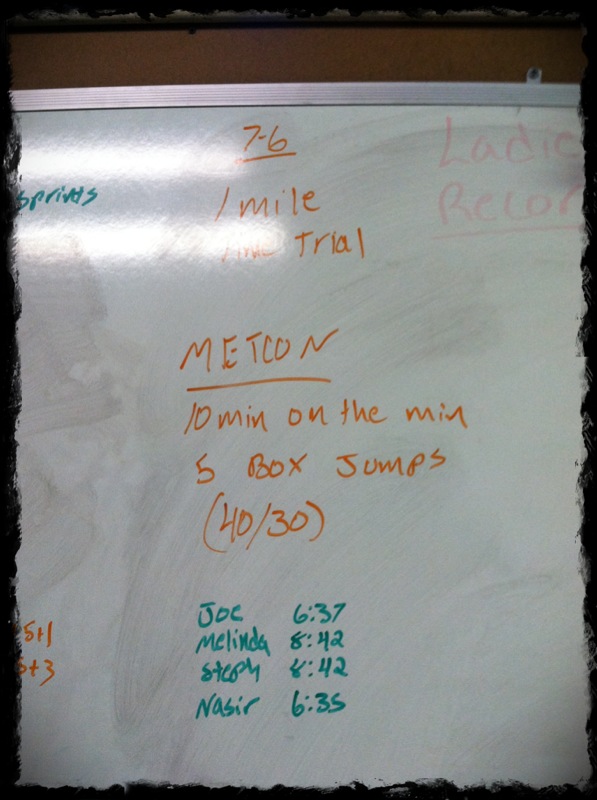 7-6
1 mile
Time Trial
METCON
10 min on the min
5 Box Jumps
(40/30)
Joe 6:37
Melinda 8:42
Steph 8:42
Nasir 6:35
sprints
5+1
5+3
Ladie
Recor